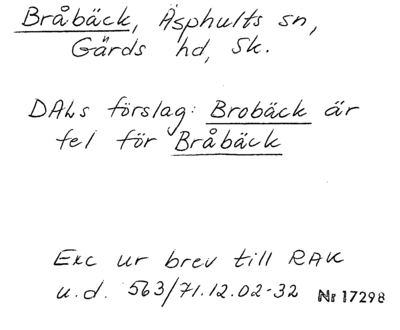 Bråbäck, Äsphults sn,
Gärds hd, Sk.
DALs förslag: Brobäck är
fel för Bråbäck
Exc ur brev till RAK
u.d. 563/71.12.02-32 Nr 17298